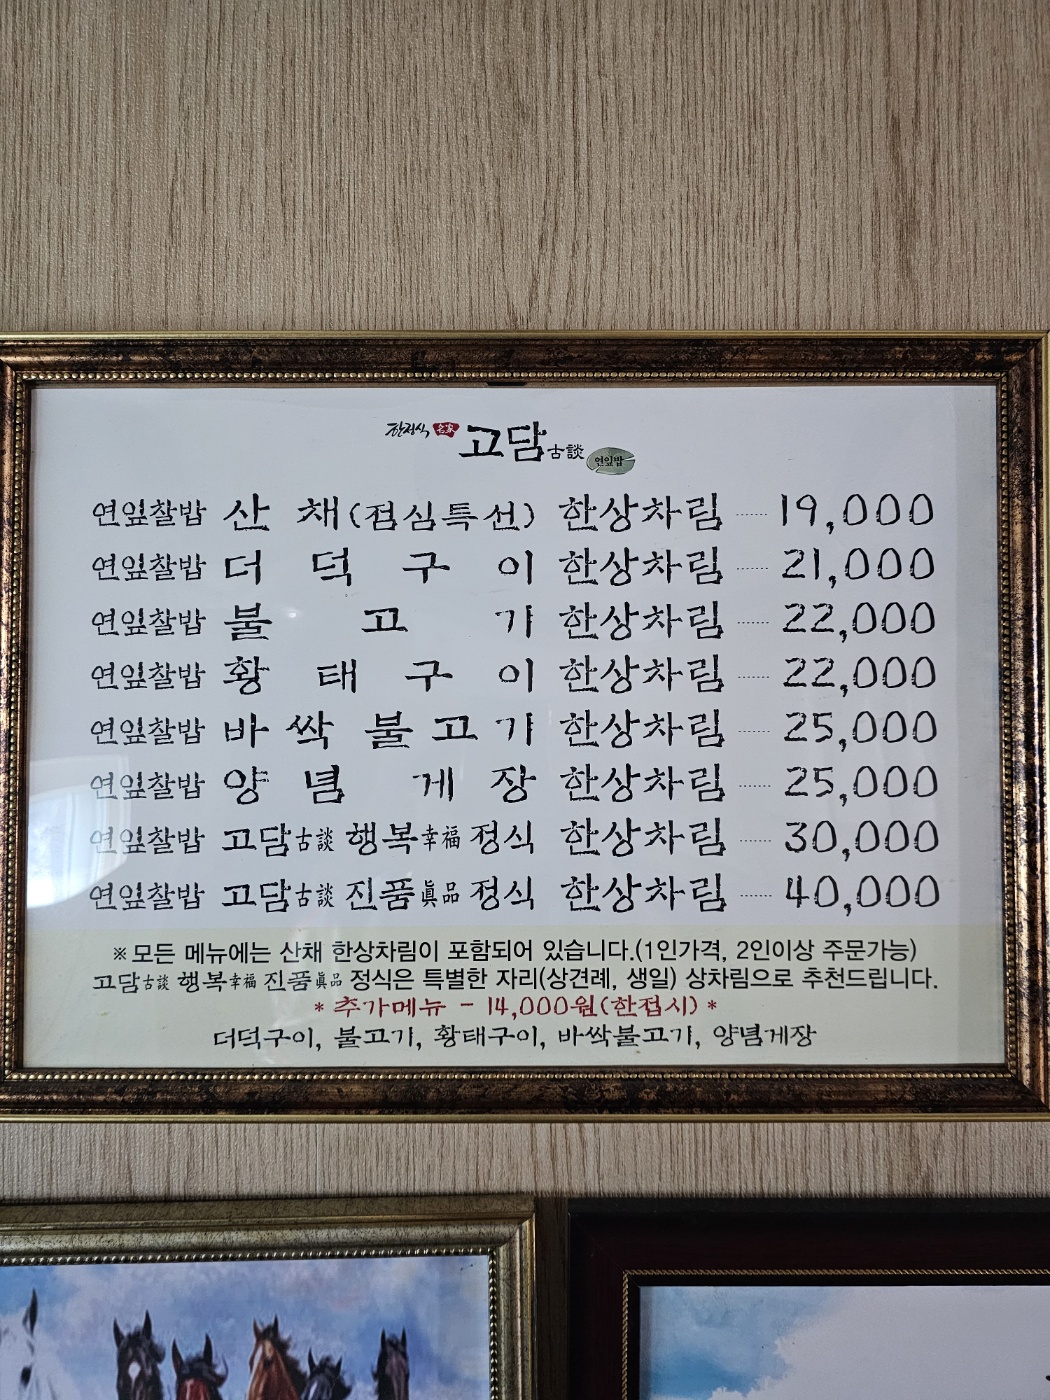 한정식 名家 고담 古談 연잎밥
연잎찰밥 산채(점심특선) 한상차림 ······ 19,000
연잎찰밥 더덕구이 한상차림 ······ 21,000
연잎찰밥 불고기 한상차림 ······ 22,000
연잎찰밥 황태구이 한상차림 ······ 22,000
연잎찰밥 바싹불고기 한상차림 ······ 25,000
연잎찰밥 양념게장 한상차림 ······ 25,000
연잎찰밥 고담古談 행복幸福 정식 한상차림 ······ 30,000
연잎찰밥 고담古談 진품眞品 정식 한상차림 ······ 40,000
※ 모든 메뉴에는 산채 한상차림이 포함되어 있습니다.(1인가격, 2인이상 주문가능)
고담古談 행복幸福 진품眞品 정식은 특별한 자리(상견례, 생일) 상차림으로 추천드립니다.
* 추가메뉴 - 14,000원(한접시) *
더덕구이, 불고기, 황태구이, 바싹불고기, 양념게장